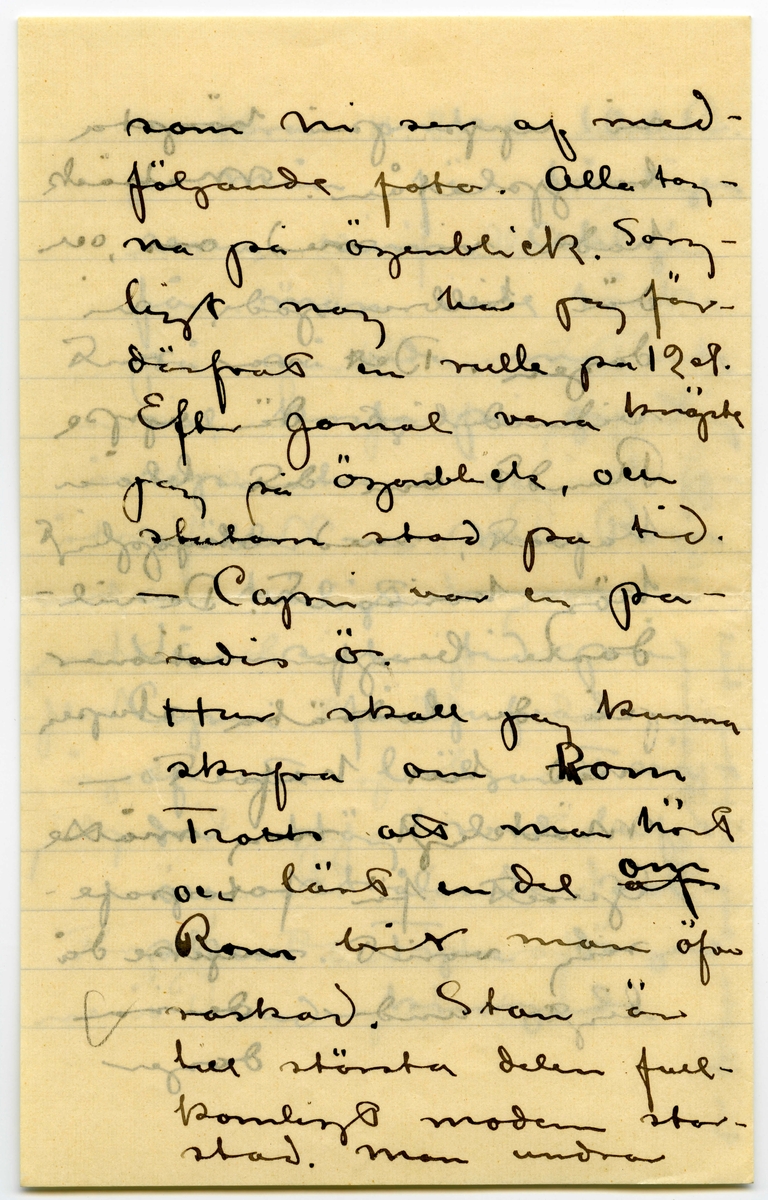 som Ni ser af med-
följande foto. Alla tag-
na på ögenblick. Sorg-
ligt nog har jag för-
därfvat en rulle på 12 st.
Efter gamal vana knäpte
jag på ögonblick, och
slutarn stod på tid.
— Capri var en pa-
radis ö.
Hur skall jag kunna
skrifva om Rom
Trotts att man hört
och läst en del om
Rom blir man öfver
raskad. Stan är
till största delen full-
komligt modern stor-
stad. Man undrar